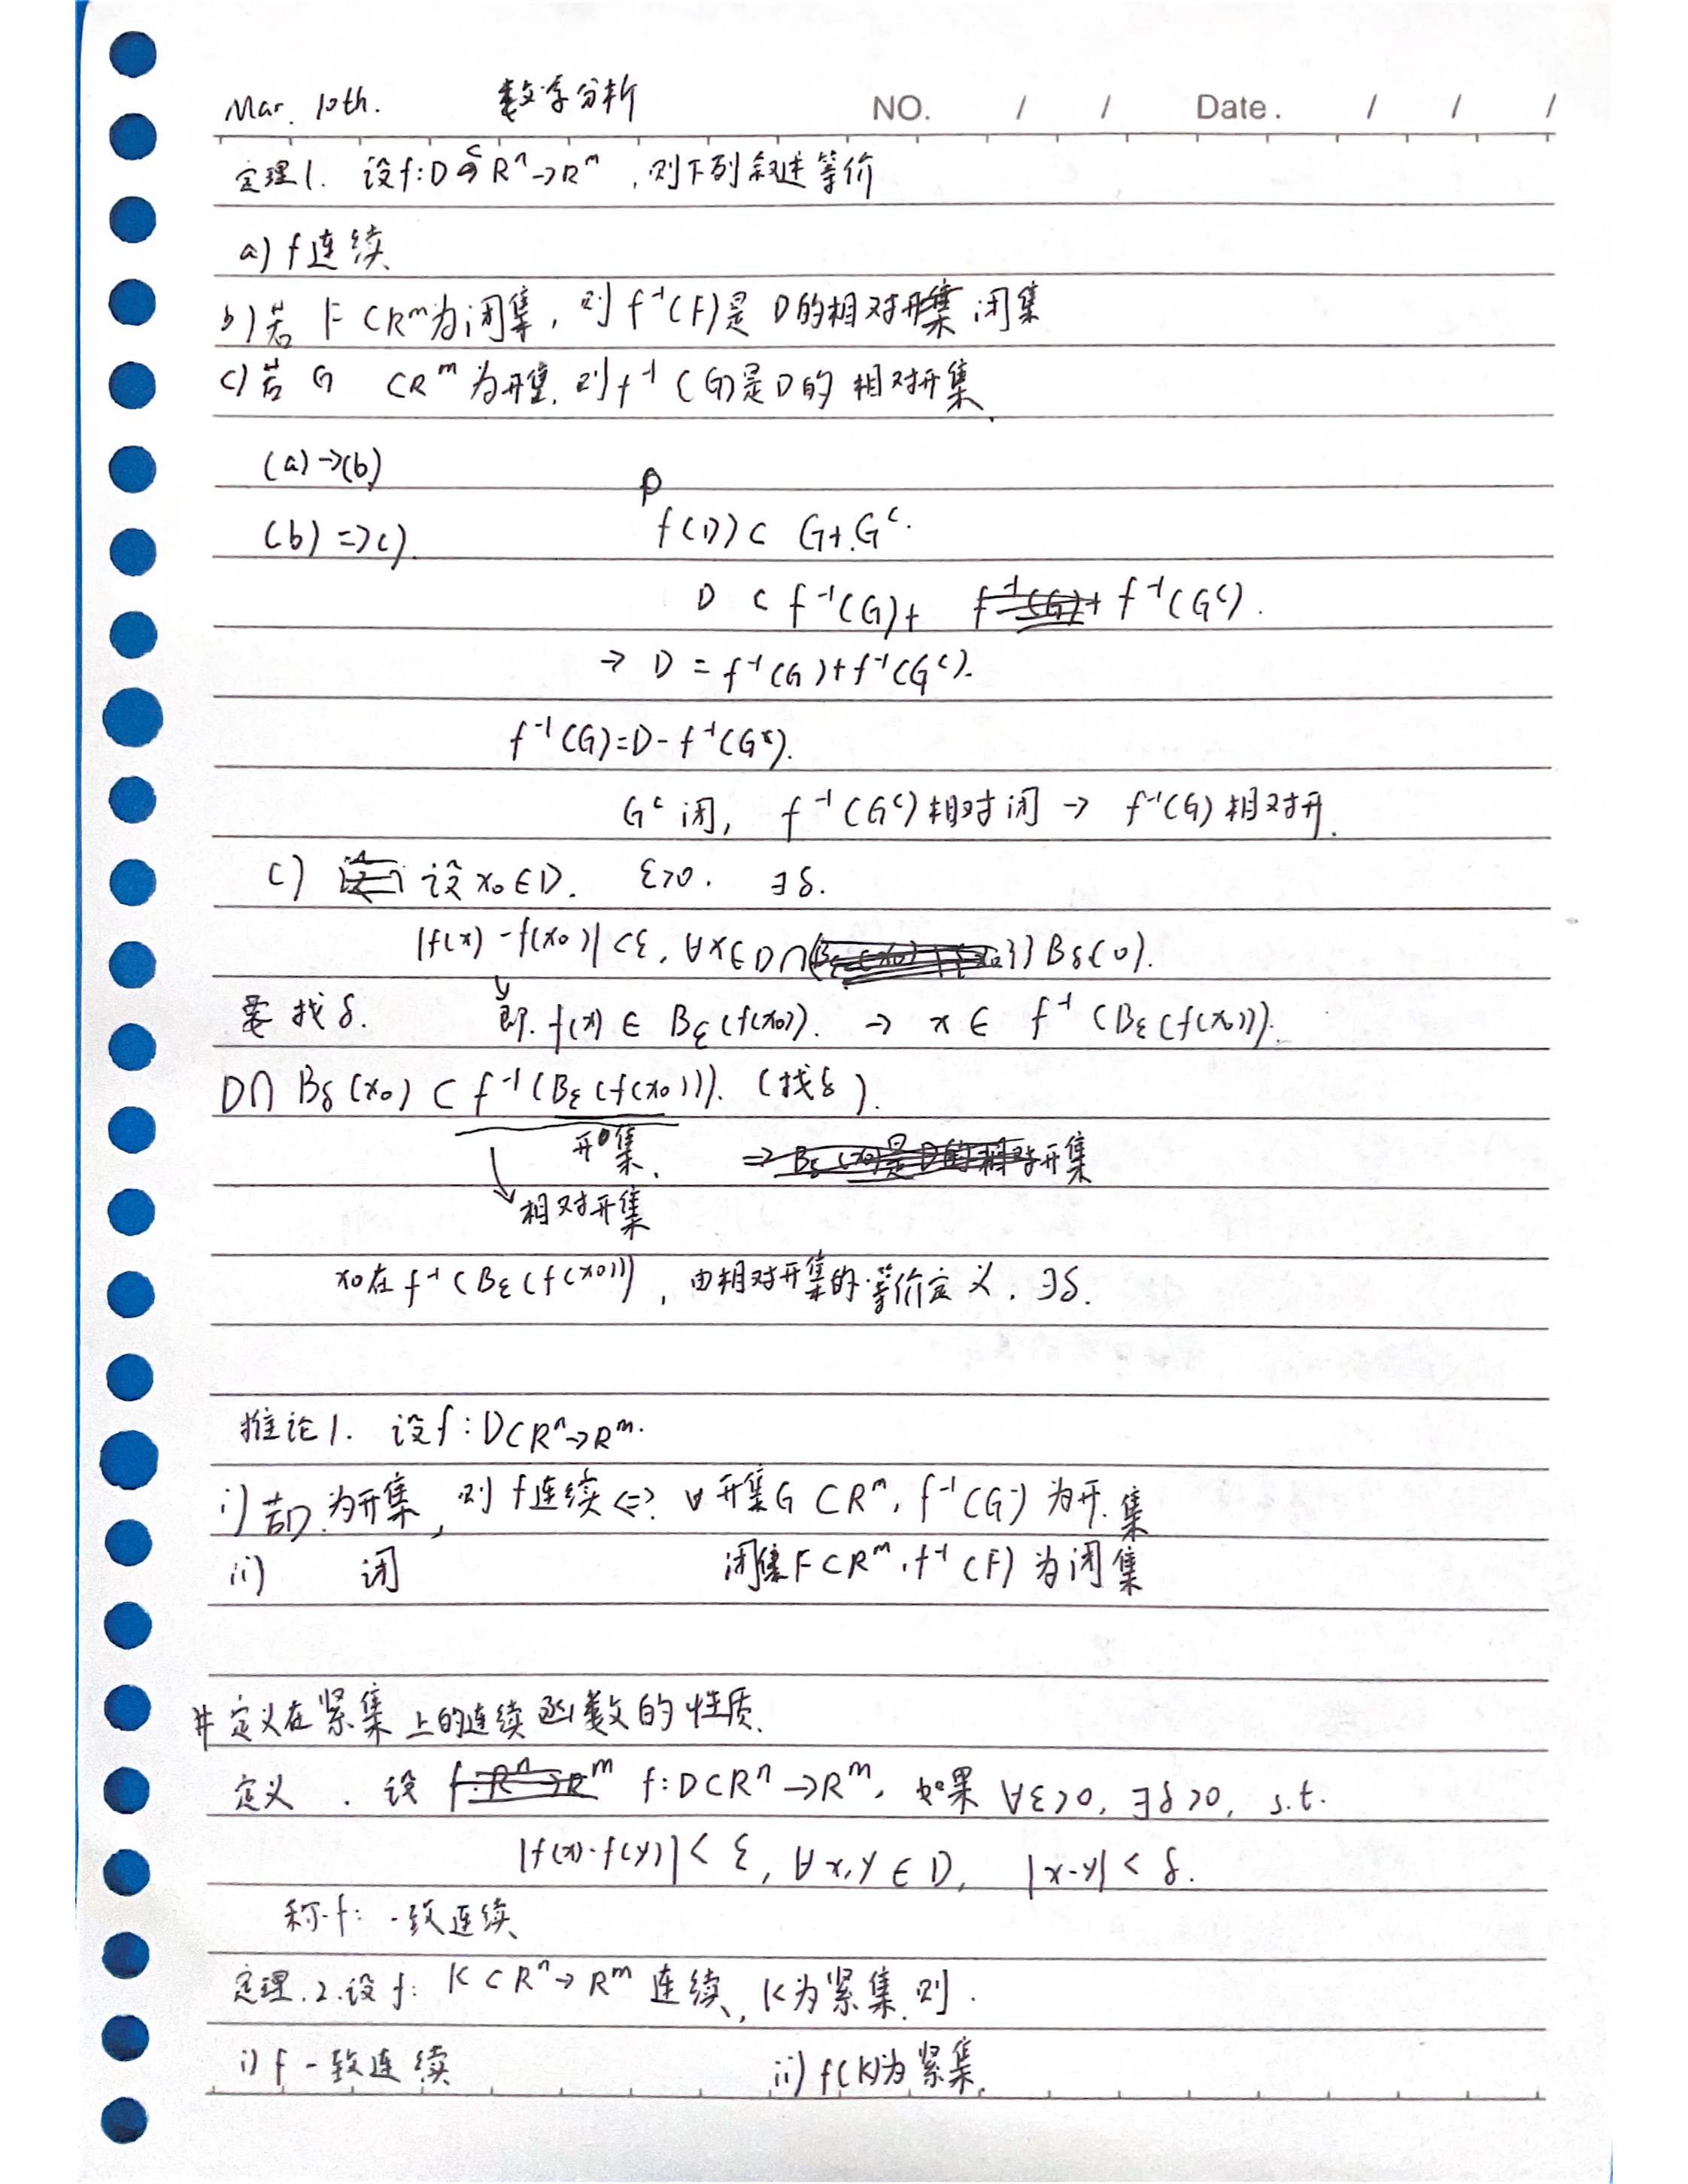 Mar. 10th. 数学分析 NO. / / Date. / / /
定理1. 设f:D⊂Rⁿ→Rᵐ,则下列叙述等价
a) f连续
b)若 F⊂Rᵐ为闭集,则f⁻¹(F)是D的相对闭集
c)若 G ⊂Rᵐ为开集,则f⁻¹(G)是D的相对开集.
(a)→(b)
(b)⇒c). f(D)⊂ G+Gᶜ.
D ⊂ f⁻¹(G)+ f⁻¹(Gᶜ).
→ D = f⁻¹(G)+f⁻¹(Gᶜ).
f⁻¹(G)=D-f⁻¹(Gᶜ).
Gᶜ闭, f⁻¹(Gᶜ)相对闭 → f⁻¹(G)相对开.
c) 设x₀∈D. ε>0. ∃δ.
|f(x)-f(x₀)|<ε, ∀x∈D∩ Bδ(0).
要找δ. 即. f(x)∈ Bε(f(x₀)). → x∈ f⁻¹(Bε(f(x₀))).
D∩Bδ(x₀)⊂f⁻¹(Bε(f(x₀))). (找δ).
开集. ⇒ Bδ(x₀)是D的相对开集
相对开集
x₀在f⁻¹(Bε(f(x₀))),由相对开集的等价定义,∃δ.
推论1. 设f:D⊂Rⁿ→Rᵐ.
i)若D为开集,则f连续⇔ ∀开集G⊂Rᵐ,f⁻¹(G)为开集
ii) 闭 闭集F⊂Rᵐ,f⁻¹(F)为闭集
#定义在紧集上的连续函数的性质.
定义. 设 f:D⊂Rⁿ→Rᵐ, 如果∀ε>0,∃δ>0, s.t.
|f(x)-f(y)|<ε,∀x,y∈D, |x-y|<δ.
称f:一致连续
定理.2.设f: K⊂Rⁿ→Rᵐ连续,K为紧集.则.
i) f一致连续 ii) f(K)为紧集.